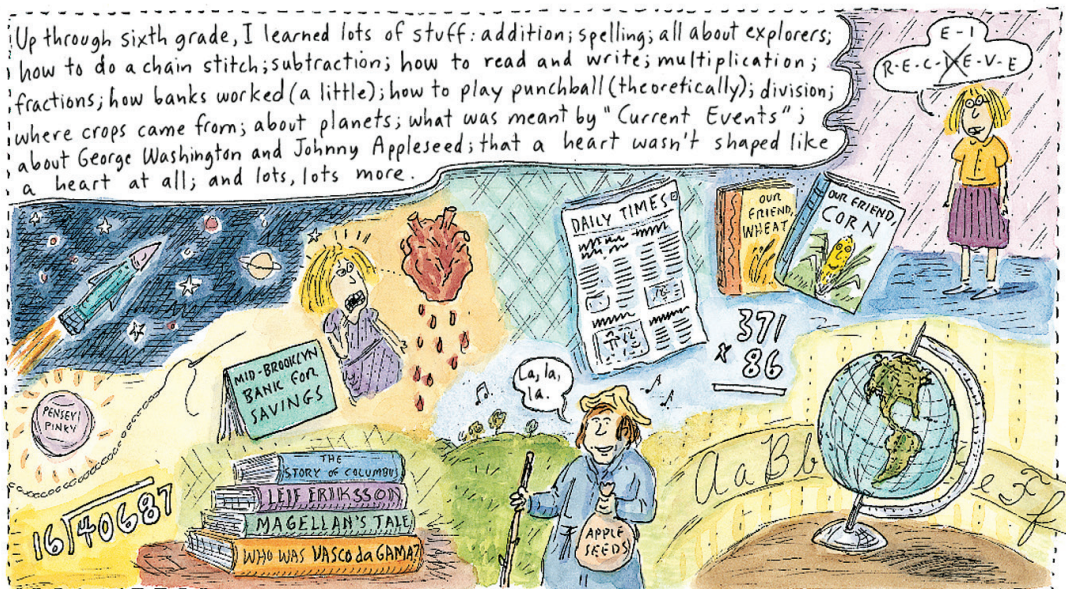 Up through sixth grade, I learned lots of stuff: addition; spelling; all about explorers;
how to do a chain stitch; subtraction; how to read and write; multiplication;
fractions; how banks worked (a little); how to play punchball (theoretically); division;
where crops came from; about planets; what was meant by "Current Events";
about George Washington and Johnny Appleseed; that a heart wasn't shaped like
a heart at all; and lots, lots more.
E-I
R-E-C-I-E-V-E
DAILY TIMES
OUR
FRIEND,
WHEAT
OUR FRIEND,
CORN
371
x 86
MID-BROOKLYN
BANK FOR
SAVINGS
PENSEY!
PINKY
La, la,
la.
THE
STORY OF COLUMBUS
LEIF ERIKSSON
MAGELLAN'S TALE
WHO WAS VASCO da GAMA?
16)40687
APPLE
SEEDS
Aa Bb e Ff